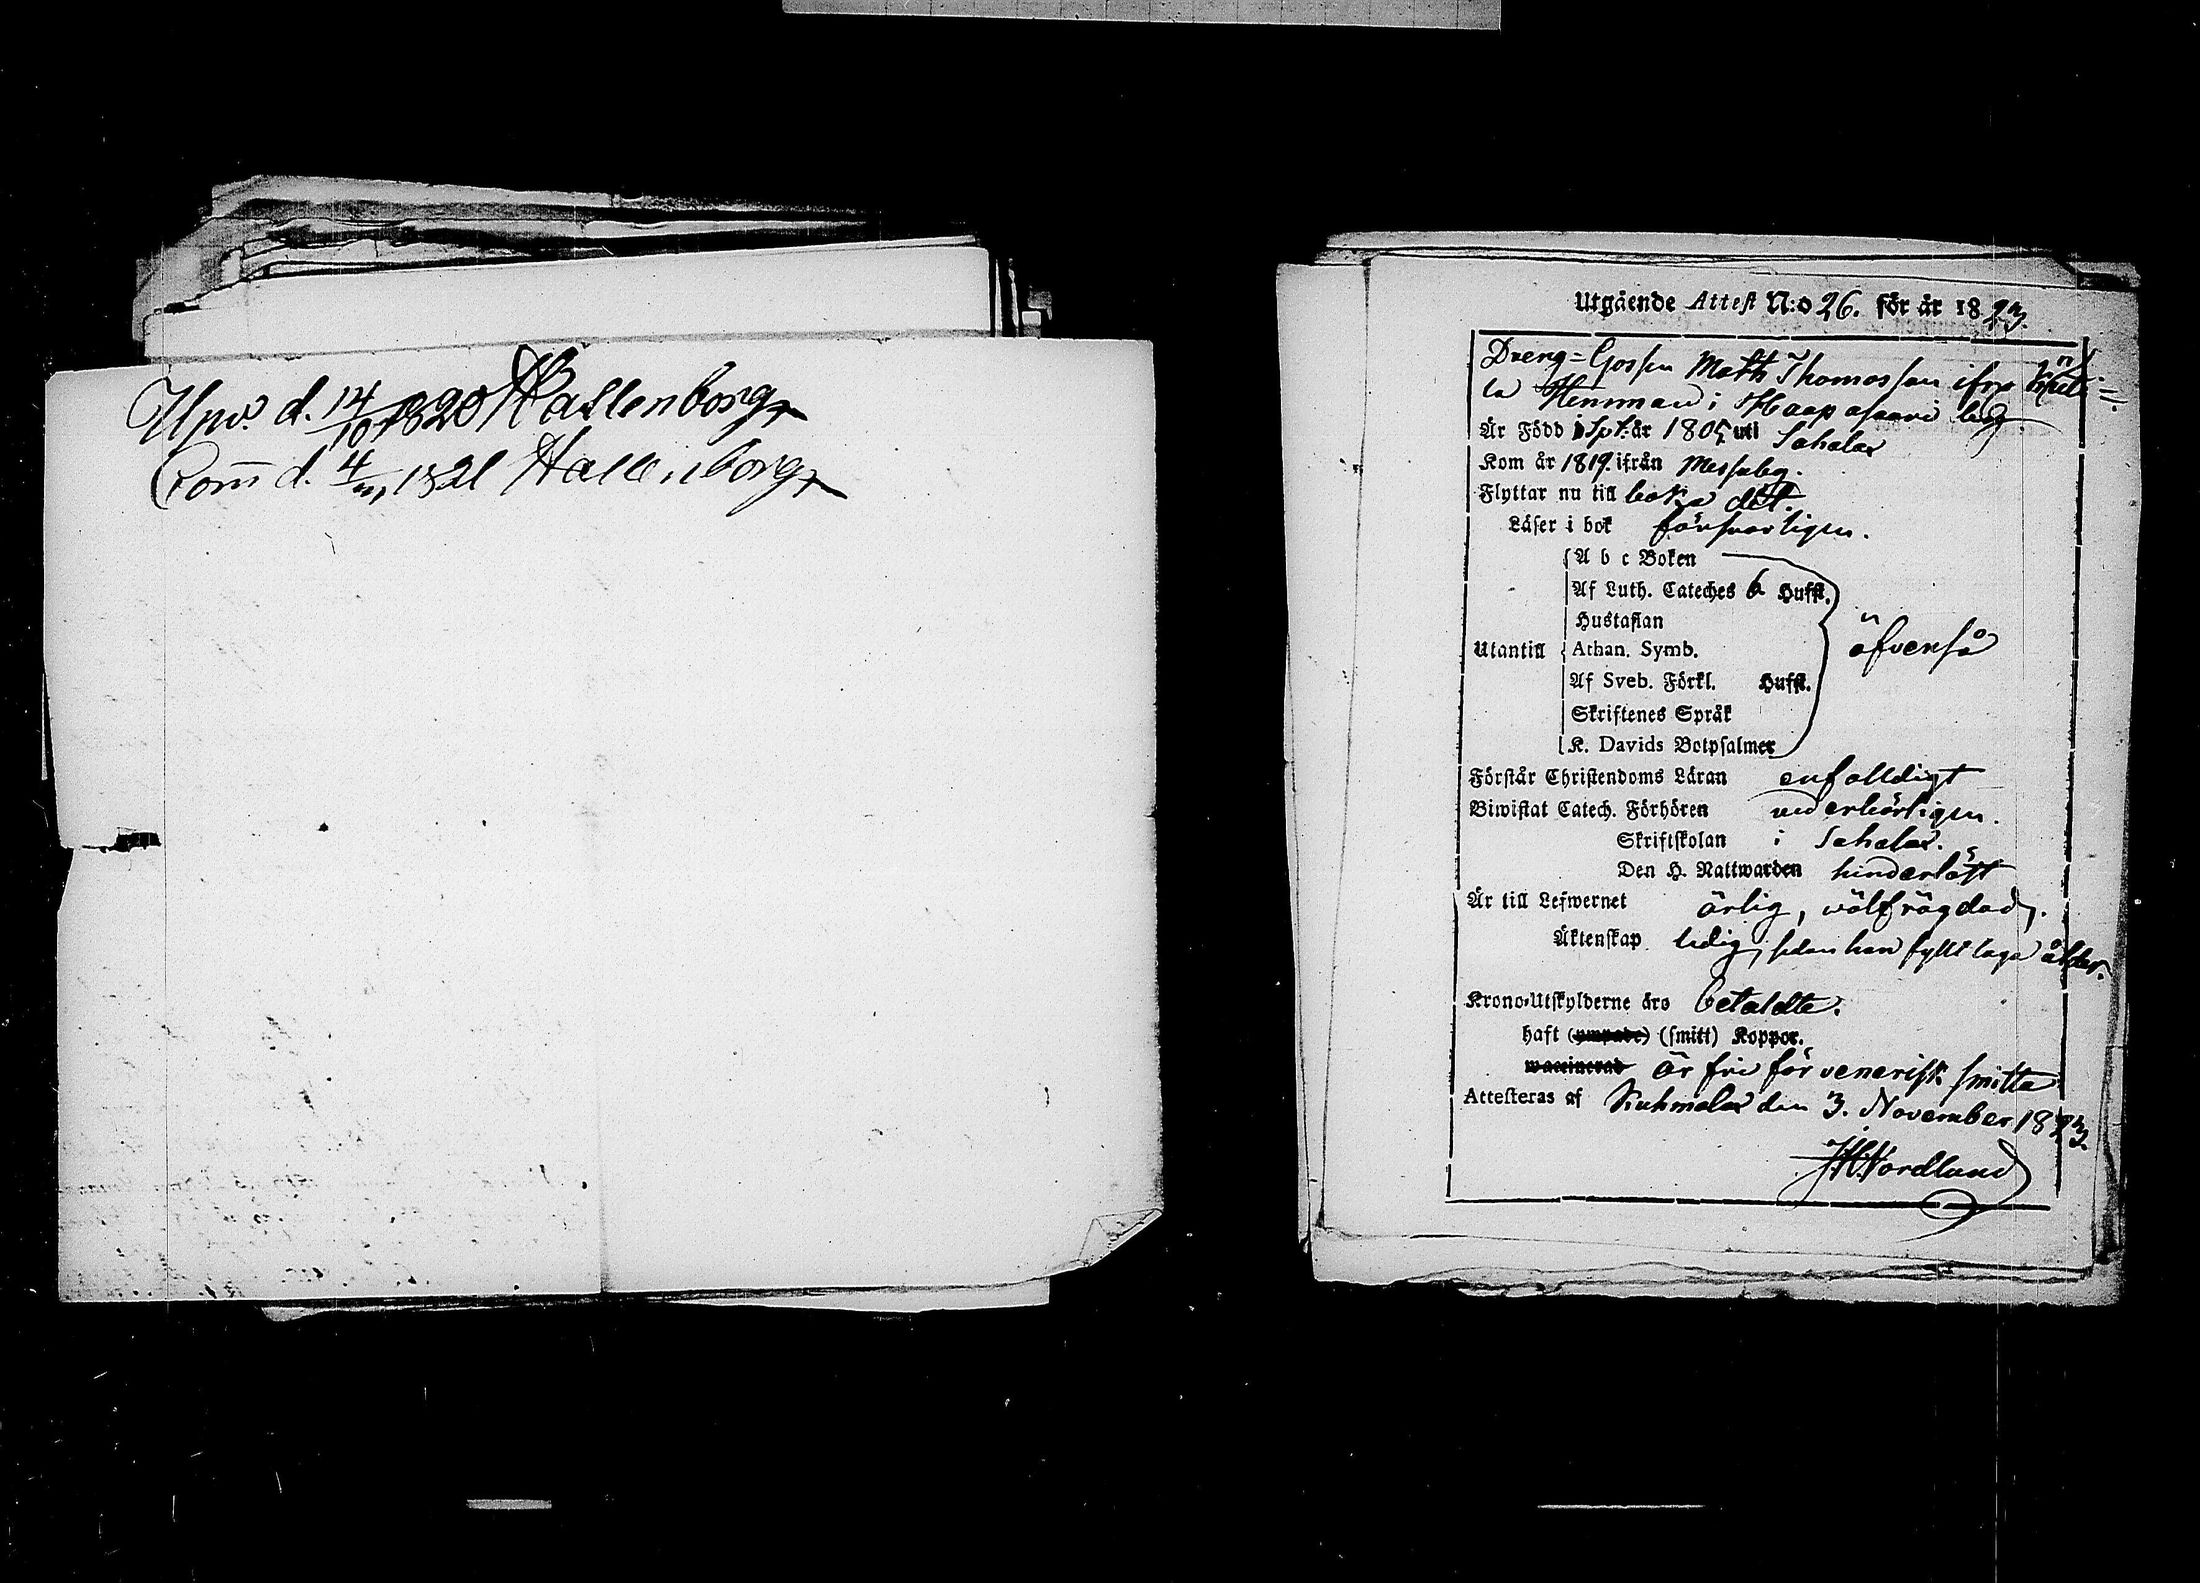 Upv. d. 14/10 1820 Hallenborg
Com̅ d. 4/11 1821 Hallenborg
Utgående Attest N:o 26. för år 1823.
Dreng-Gossen Matts Thomasson ifrå
la Hemman i Haapasaari beg
Är Född i Sept. år 1805 uti Sahalax
Kom år 1819. ifrån Messuby.
Flyttar nu till baka dit.
Läser i bok försvarligen.
A b c Boken
Af Luth. Cateches 6 Huffst.
Hustaflan
Utantill Athan. Symb. äfvenså
Af Sveb. Förkl. Huffst.
Skriftenes Språk
K. Davids Botpsalmer
Förstår Christendoms Läran enfalldigt
Biwistat Catech. Förhören vederbörligen.
Skriftskolan i Sahalax.
Den H. Nattwarden hinderlöst
Är till Lefwernet ärlig, wälfrägdad,
Äktenskap ledig, sedan han fyllt laga ålder.
Krono-Utskylderne äro betaldte.
haft (ympade) (smitt) Koppor.
waccinerad är fri för venerisk smitta
Attesteras af Kuhmalax den 3. November 1823.
JH Nordlund